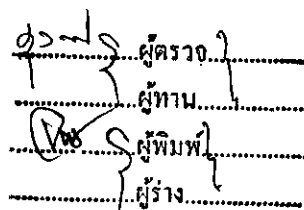 ผู้ตรวจ
ผู้ทาน
ผู้พิมพ์
ผู้ร่าง